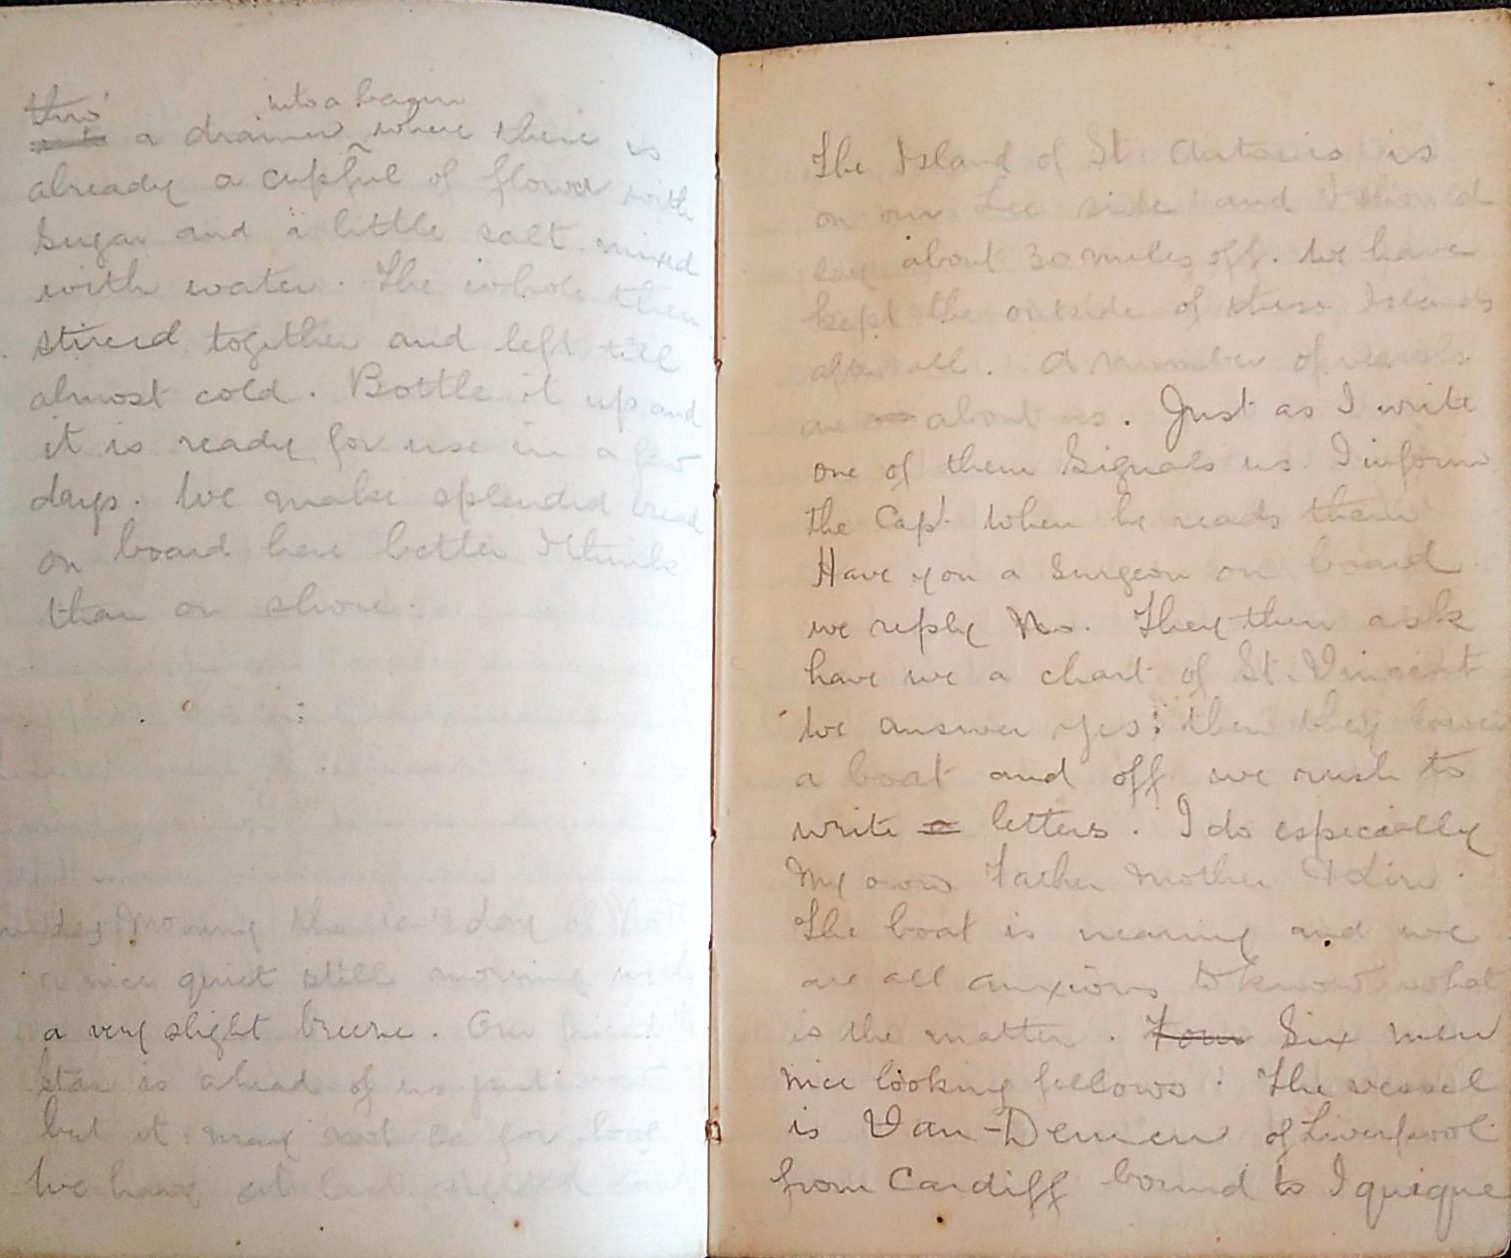 thro
into a basin
a drainer where there is
already a cupful of flour with
Sugar and a little salt mixed
with water. The whole then
stired together and left till
almost cold. Bottle it up and
it is ready for use in a few
days. We make splendid bread
on board here better I think
than on shore.
Morning the last day of Nov
a nice quiet still morning with
a very slight breeze. Our friend the
Star is ahead of us just now
but it may not be for long
We have at last
The Island of St. Antonio is
on our Lee side and I should
say about 30 miles off. We have
kept the outside of these Islands
after all. A number of vessels
are about us. Just as I write
one of them Signals us. I inform
the Capt. When he reads them
Have you a Surgeon on board
we reply No. They then ask
have we a chart of St. Vincent
We answer yes: then they lower
a boat and off we rush to
write letters. I do especially
My own Father Mother
The boat is nearing and we
are all anxious to know what
is the matter. Four Six men
nice looking fellows. The vessel
is Van-Demen of Liverpool
from Cardiff bound to Iquique